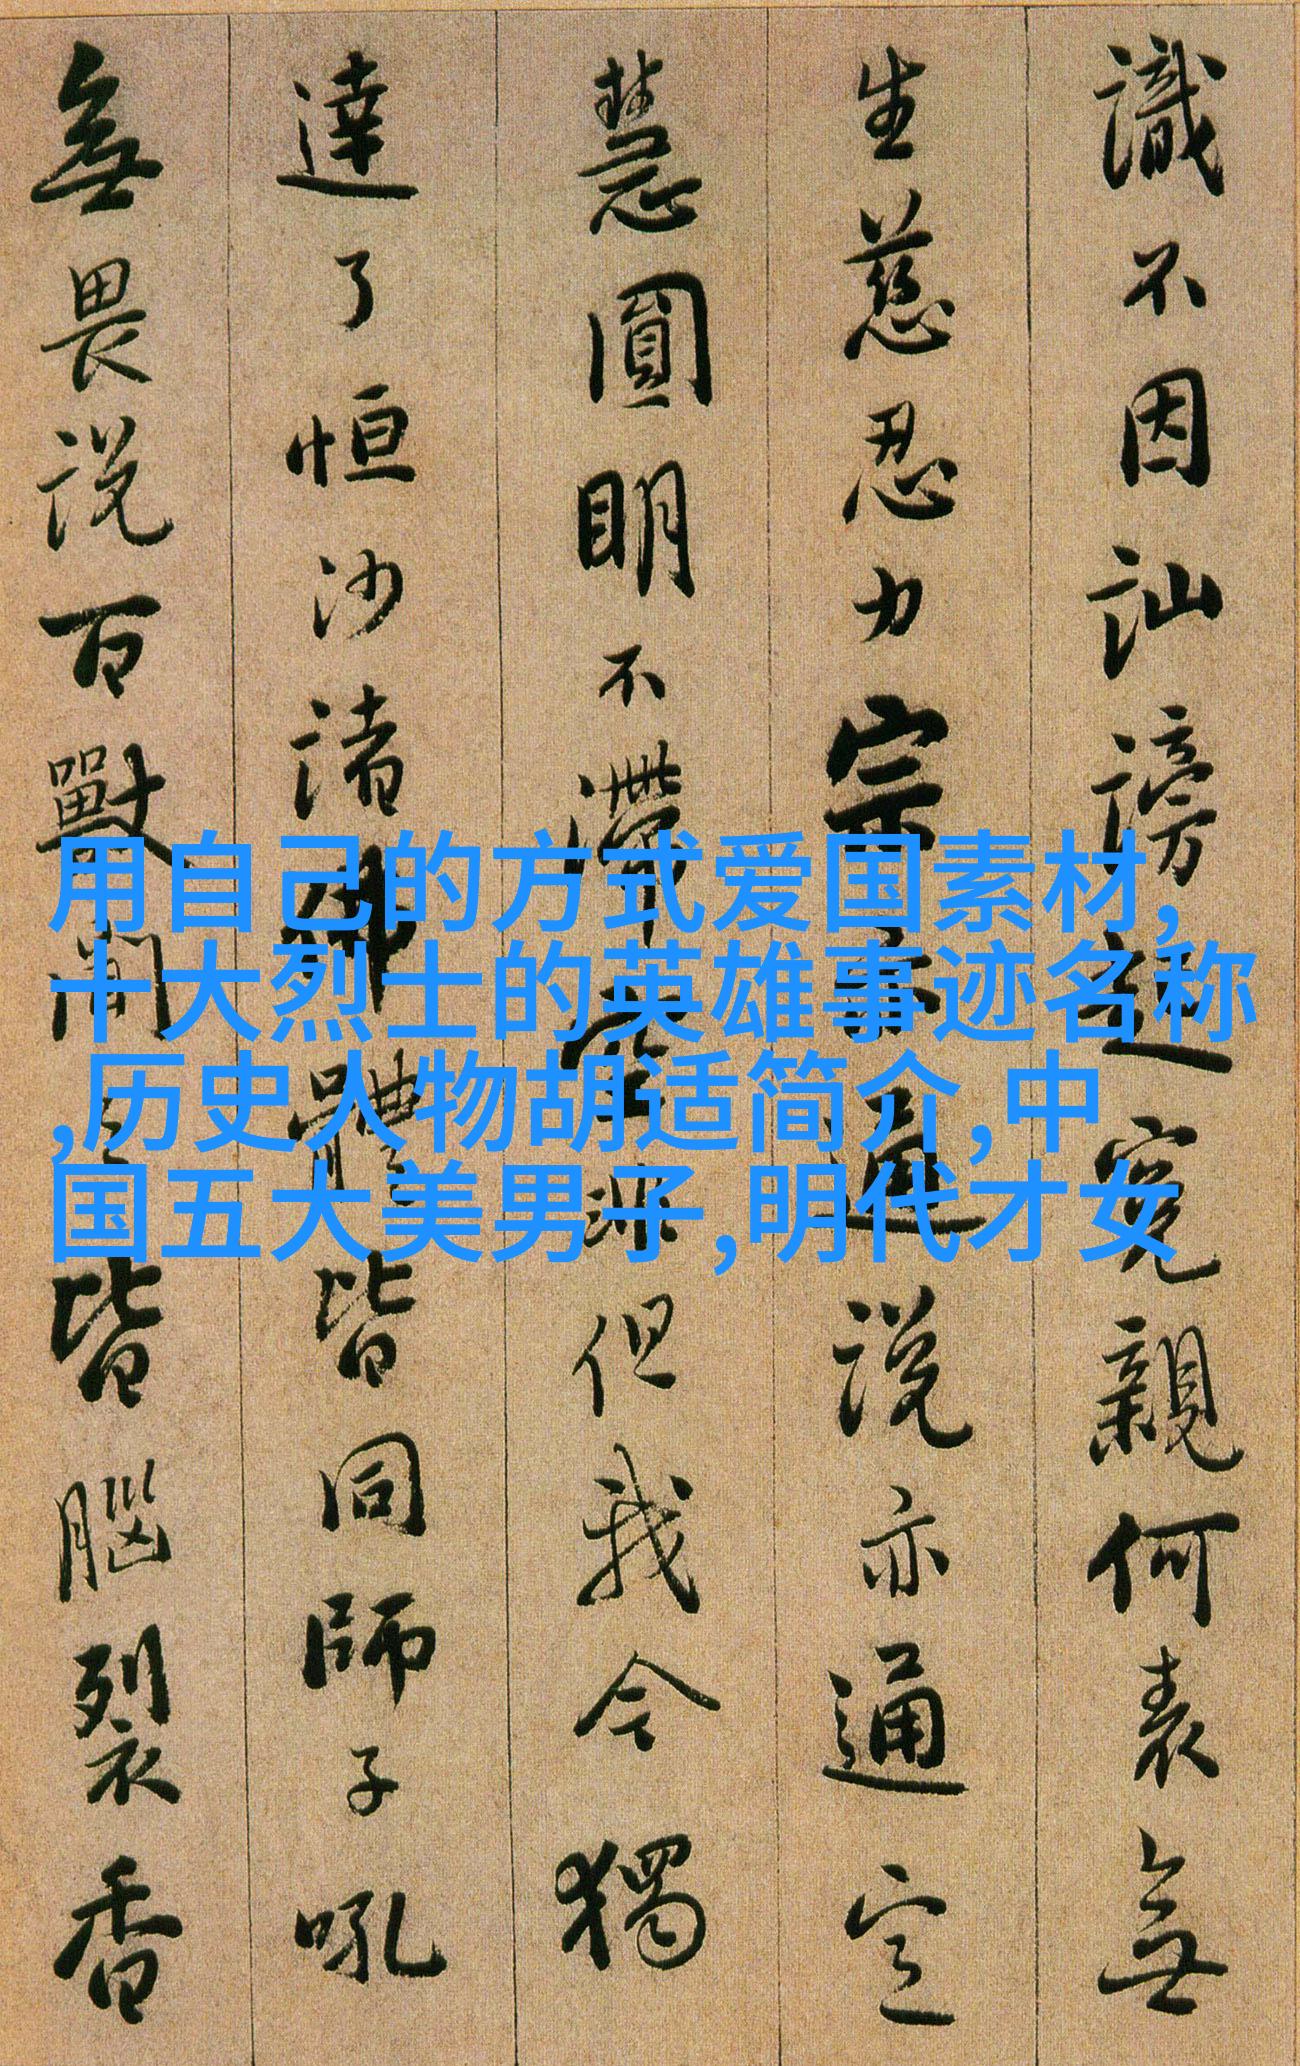 識不因訕謗起寃親何表無
生慈忍力宗亦通説亦通定
慧圓明不滯空非但我今獨
達了恒沙諸佛體皆同師子吼
無畏説百獸聞之皆腦裂香
用自己的方式爱国素材,
十大烈士的英雄事迹名称
,历史人物胡适简介,中
国五大美男子,明代才女